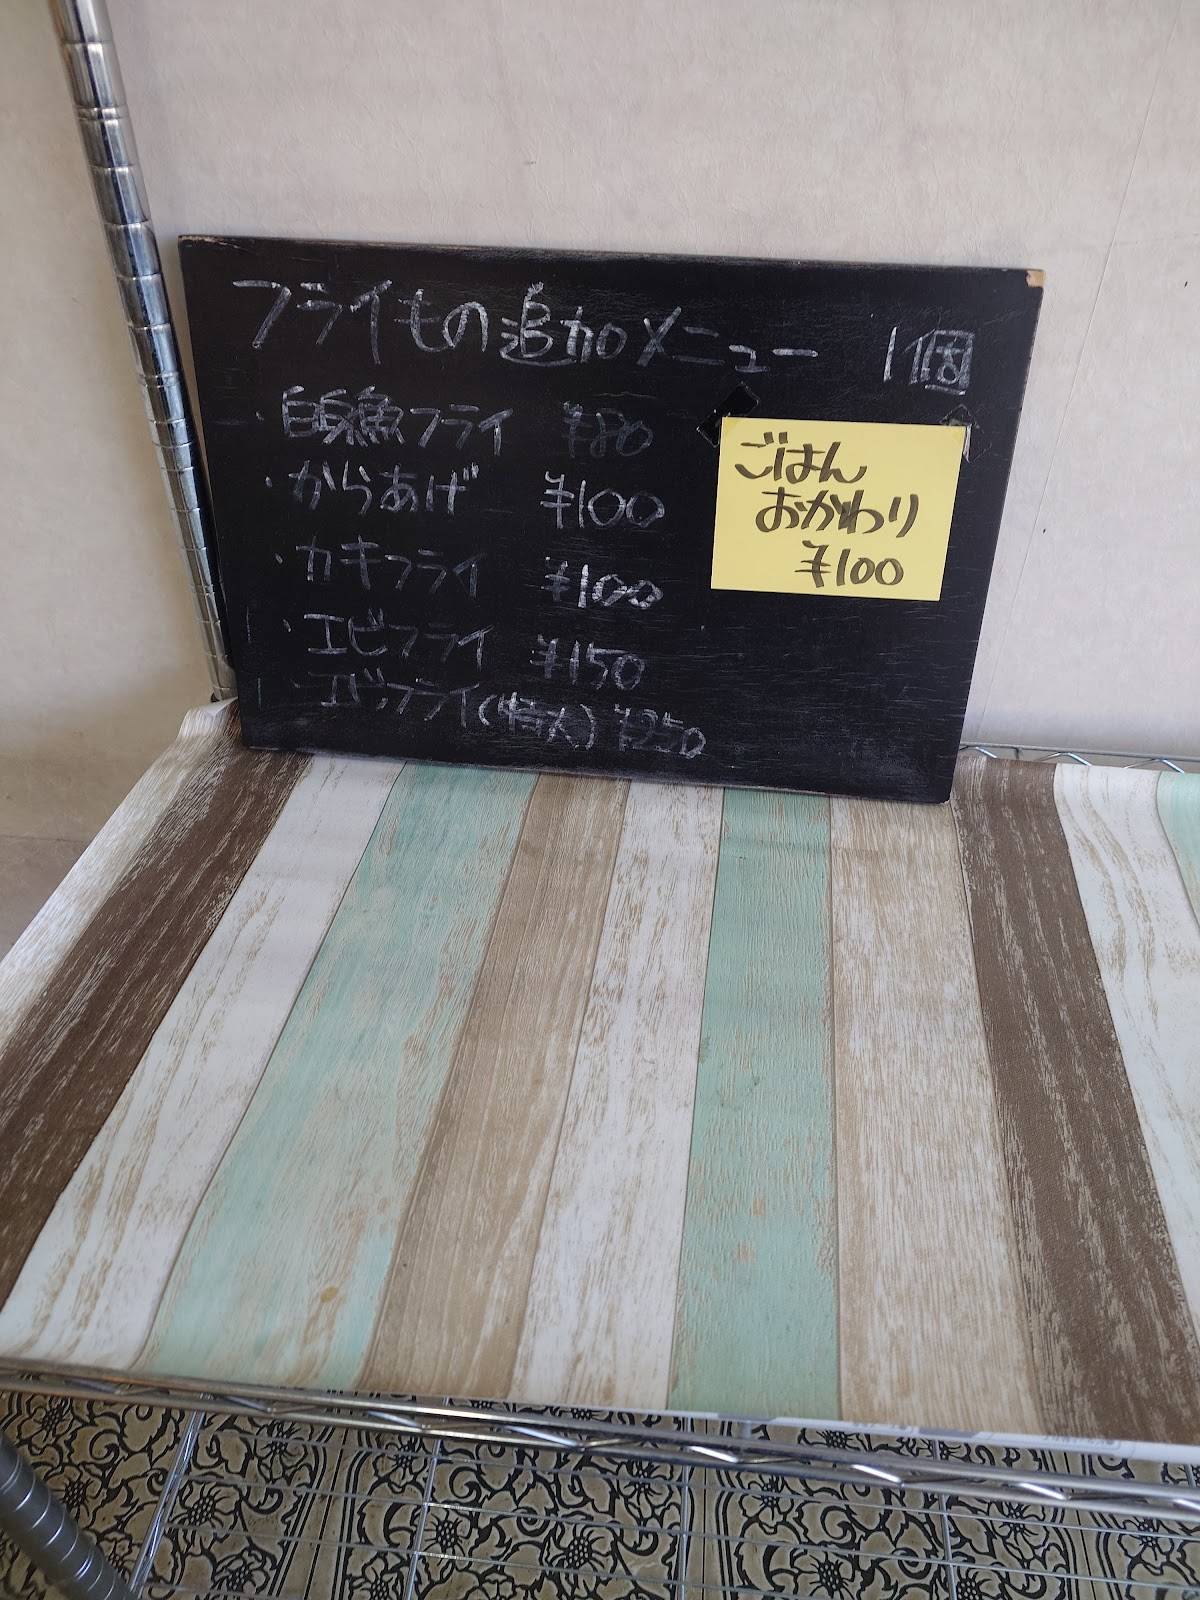 フライもの追加メニュー 1個
・白身魚フライ ¥80
・からあげ ¥100
・カキフライ ¥100
・エビフライ ¥150
・エビフライ(特大) ¥250
ごはん
おかわり
¥100